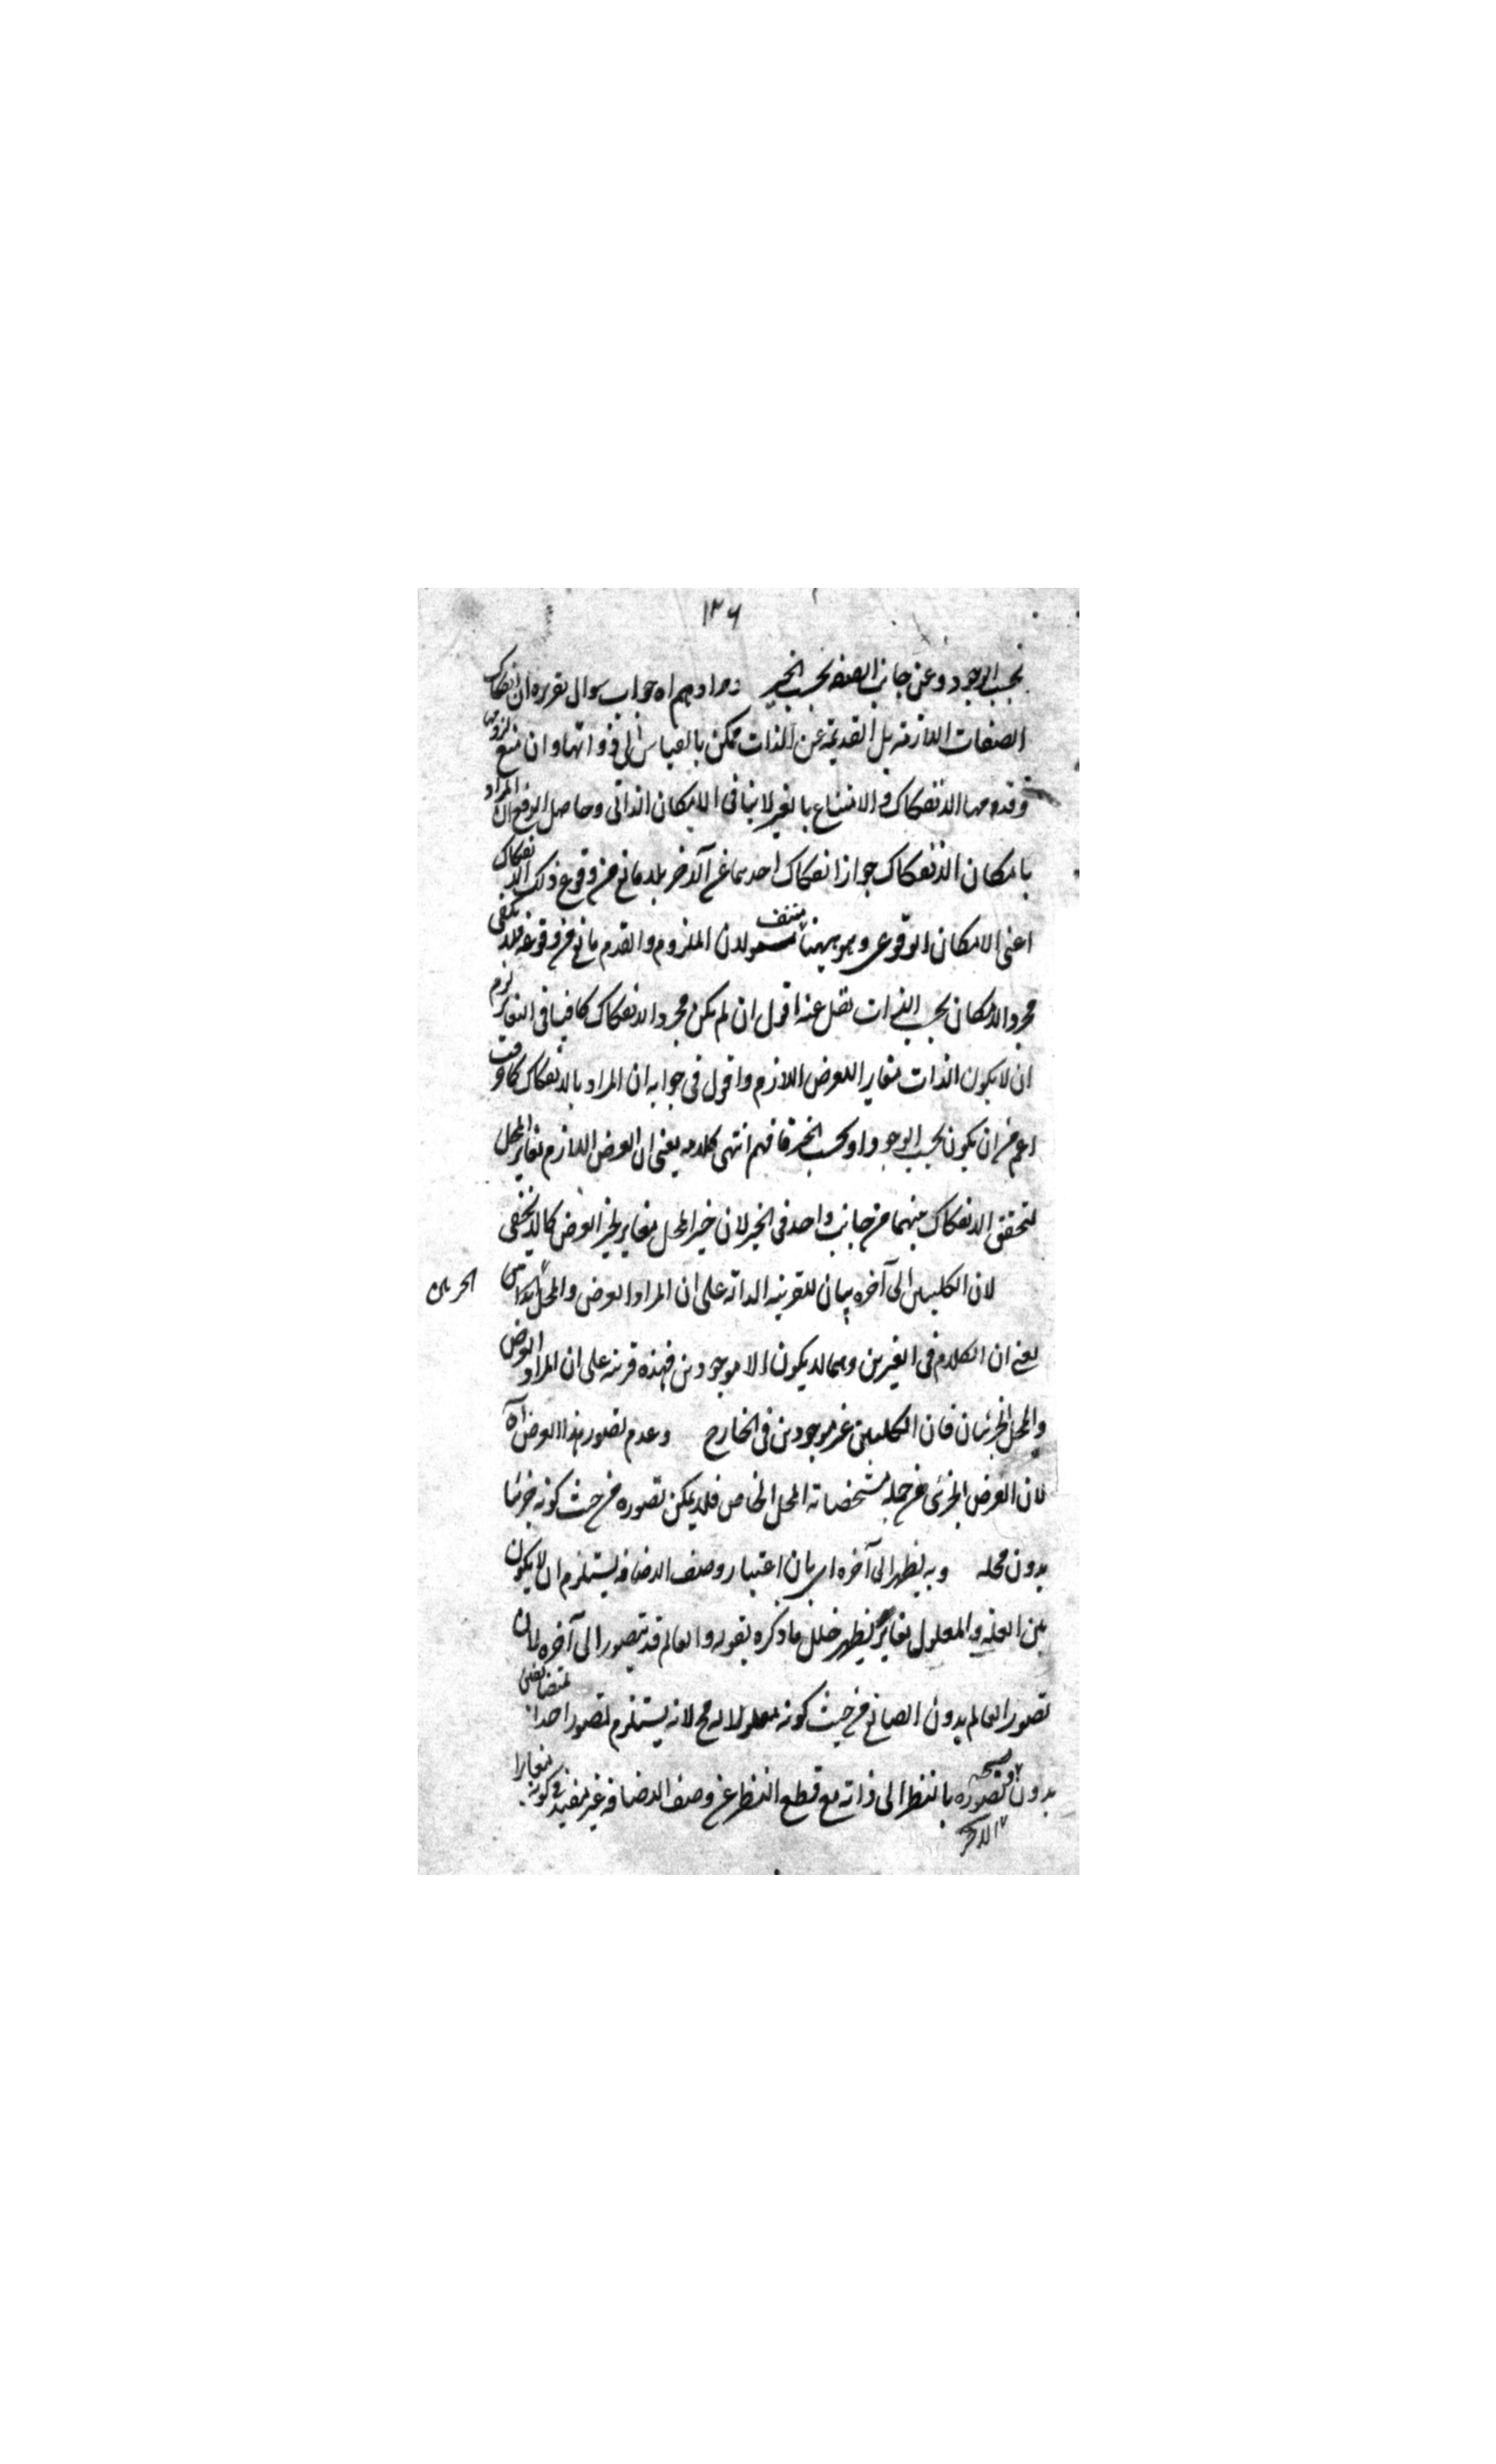 ١٣٦
بحسب الوجود وعن جانب الصفة بحسب الحيز ومرادهم اه جواب سوال تقريره ان انفكاك
الصفات اللازمة بل القديمة عن الذات ممكن بالقياس الى ذواتها وان منع لزومها
وقدومها الانفكاك والامتناع بالغير لا ينافى الامكان الذاتى وحاصل الدفع ان المراد
بامكان الانفكاك جواز انفكاك احدهما عن الآخر بلا مانع من وقوع ذلك الانفكاك
اعنى الامكان الوقوعى وهو ههنا منتف لان الملزوم والقدم مانع من وقوعه فلا يكفى
مجرد الامكان بحسب الذات نقل عنه اقول ان لم يكن مجرد الانفكاك كافيا فى التغاير لزم
ان لا يكون الذات مغاير اللعرض اللازم واقول فى جوابه ان المراد بالانفكاك كما عرفت
اعم من ان يكون بحسب الوجود او بحسب الحيز فافهم انتهى كلامه يعنى ان العرض اللازم يغاير المحل
لتحقق الانفكاك بينهما من جانب واحد فى الحيز لان حيز المحل مغاير لحيز العرض كما لا يخفى
لان الكليين الى آخره بيان للقرينة الدالة على ان المراد العرض والمحل
الجزئيين
يعنى ان الكلام فى الغيرين وهما لا يكونان الا موجودين فهذه قرينة على ان المراد العرض
والمحل الجزئيان فان الكليين غير موجودين فى الخارج وعدم تصور هذا العرض اه
لان العرض الجزئى من جملة مشخصاته المحل الخاص فلا يمكن تصوره من حيث كونه جزئيا
بدون محله وبه يظهر الى آخره اى بان اعتبار وصف الاضافة يستلزم ان لا يكون
بين العلة والمعلول تغاير يظهر خلل ما ذكره بقوله والعالم قد يتصور الى آخره لان
تصور العالم بدون الصانع من حيث كونه معلولا له مح لانه يستلزم تصور احد المتضايفين
بدون الآخر وصحة تصوره بالنظر الى ذاته مع قطع النظر عن وصف الاضافة غير مفيد فى كونه مغايرا